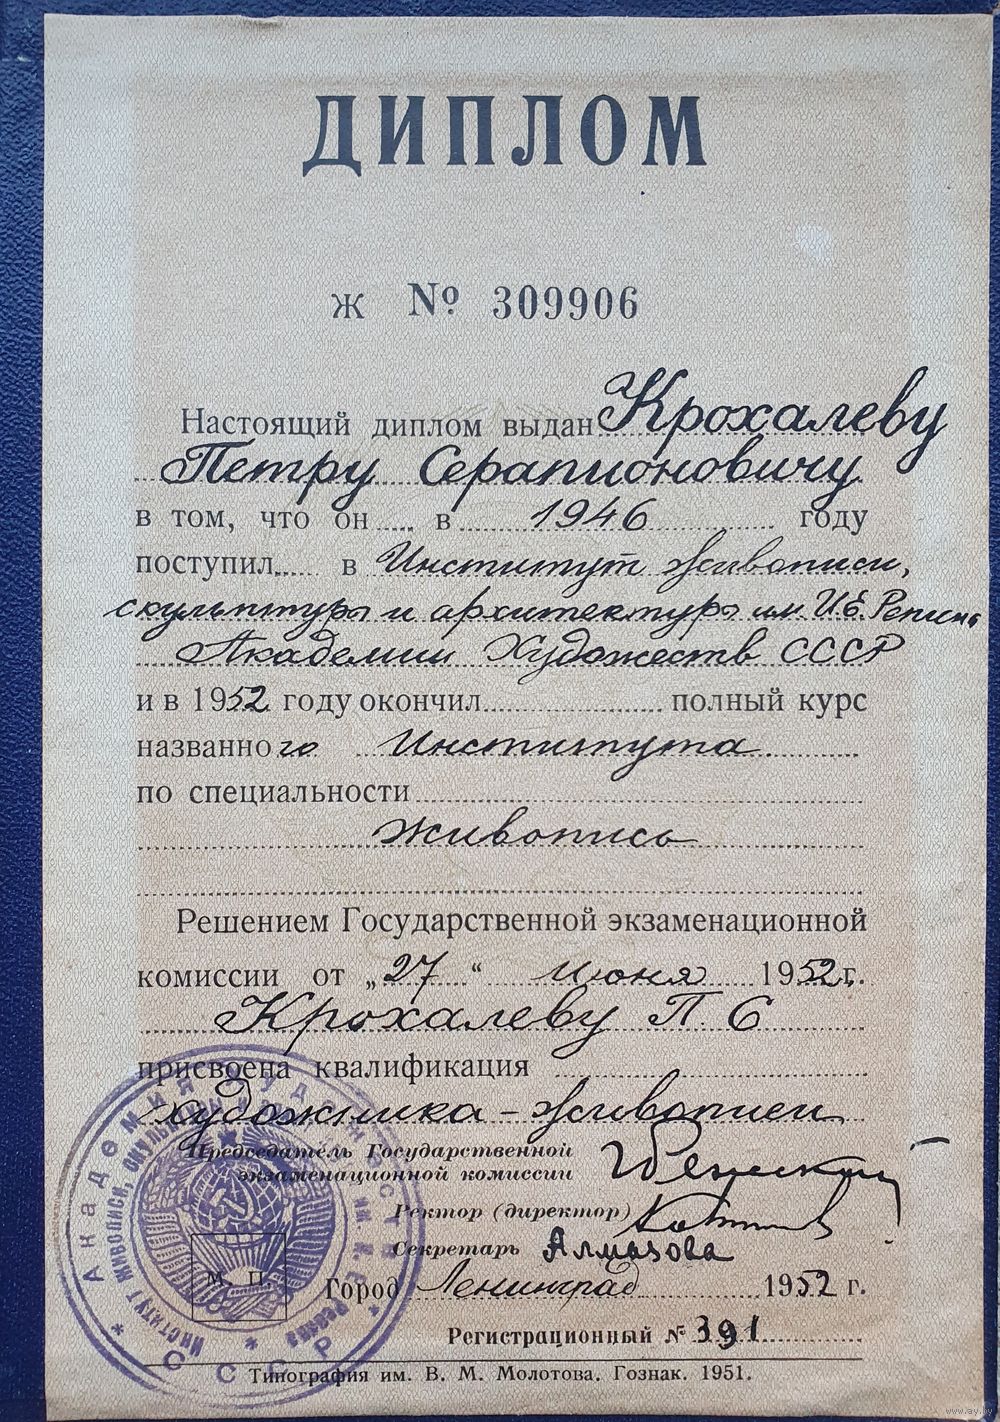 ДИПЛОМ
Ж № 309906
Настоящий диплом выдан Крохалеву
Петру Серапионовичу
в том, что он в 1946 году
поступил в Институт живописи,
скульптуры и архитектуры им. И.Е. Репина
Академии Художеств СССР
и в 1952 году окончил полный курс
названного Института
по специальности
живопись
Решением Государственной экзаменационной
комиссии от „27“ июня 1952 г.
Крохалеву П. С
присвоена квалификация
художника-живописи
Председатель Государственной
экзаменационной комиссии
Ректор (директор)
Секретарь Алмазова
М. П.
Город Ленинград 1952 г.
Регистрационный № 391
Типография им. В. М. Молотова. Гознак. 1951.
Академия Художеств
СССР
Институт живописи, скульптуры и
им. И. Е. Репина
www.ay.by